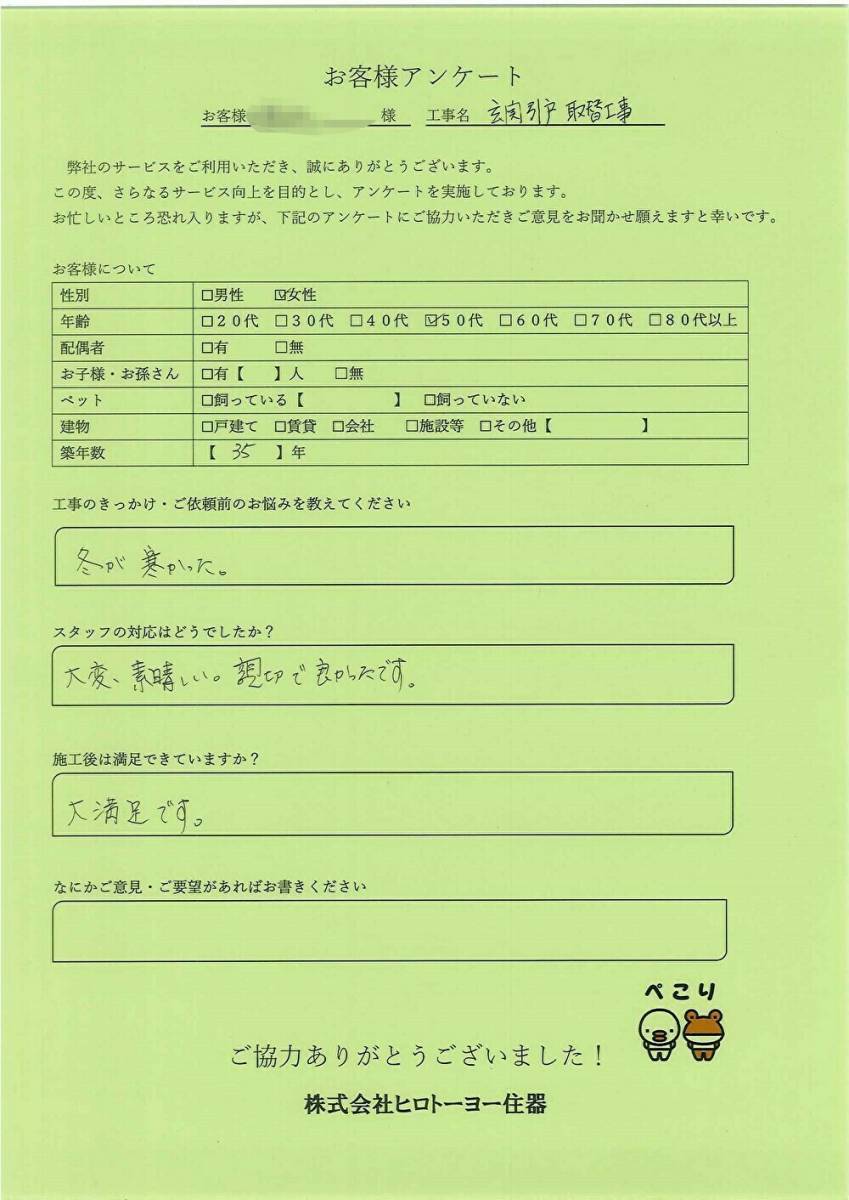 お客様アンケート
お客様 様 工事名 玄関引戸 取替工事
弊社のサービスをご利用いただき、誠にありがとうございます。
この度、さらなるサービス向上を目的とし、アンケートを実施しております。
お忙しいところ恐れ入りますが、下記のアンケートにご協力いただきご意見をお聞かせ願えますと幸いです。
お客様について
性別 □男性 ☑女性
年齢 □20代 □30代 □40代 ☑50代 □60代 □70代 □80代以上
配偶者 □有 □無
お子様・お孫さん □有【 】人 □無
ペット □飼っている【 】 □飼っていない
建物 □戸建て □賃貸 □会社 □施設等 □その他【 】
築年数 【 35 】年
工事のきっかけ・ご依頼前のお悩みを教えてください
冬が寒かった。
スタッフの対応はどうでしたか？
大変、素晴しい。親切で良かったです。
施工後は満足できていますか？
大満足です。
なにかご意見・ご要望があればお書きください
ぺこり
ご協力ありがとうございました！
株式会社ヒロトーヨー住器